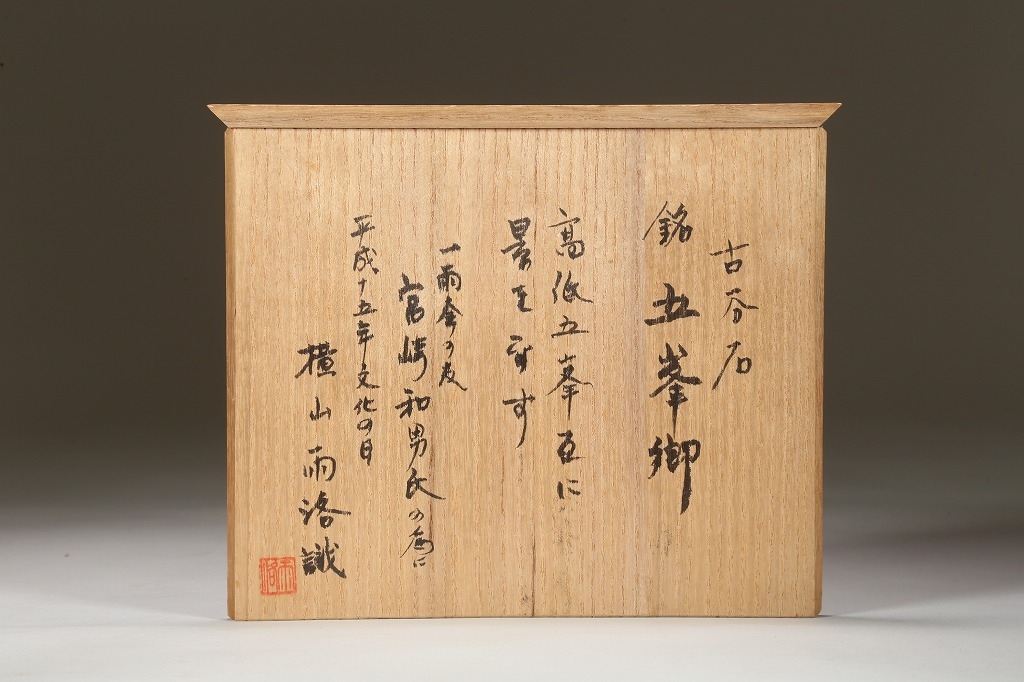 古分石
銘 五峯郷
高低五峯互に
景を引す
一雨会の友
宮崎和男氏の為に
平成十五年文化の日
横山雨洛識
雨洛